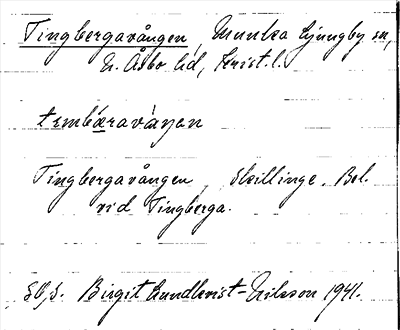 Tingbergavången, Munka Ljungby sn,
N. Åsbo hd, Krist. l.
tembæravaŋen
Tingbergavången, Skillinge. Bel.
vid Tingberga.
Birgit Lundkvist-Nilsson 1941.